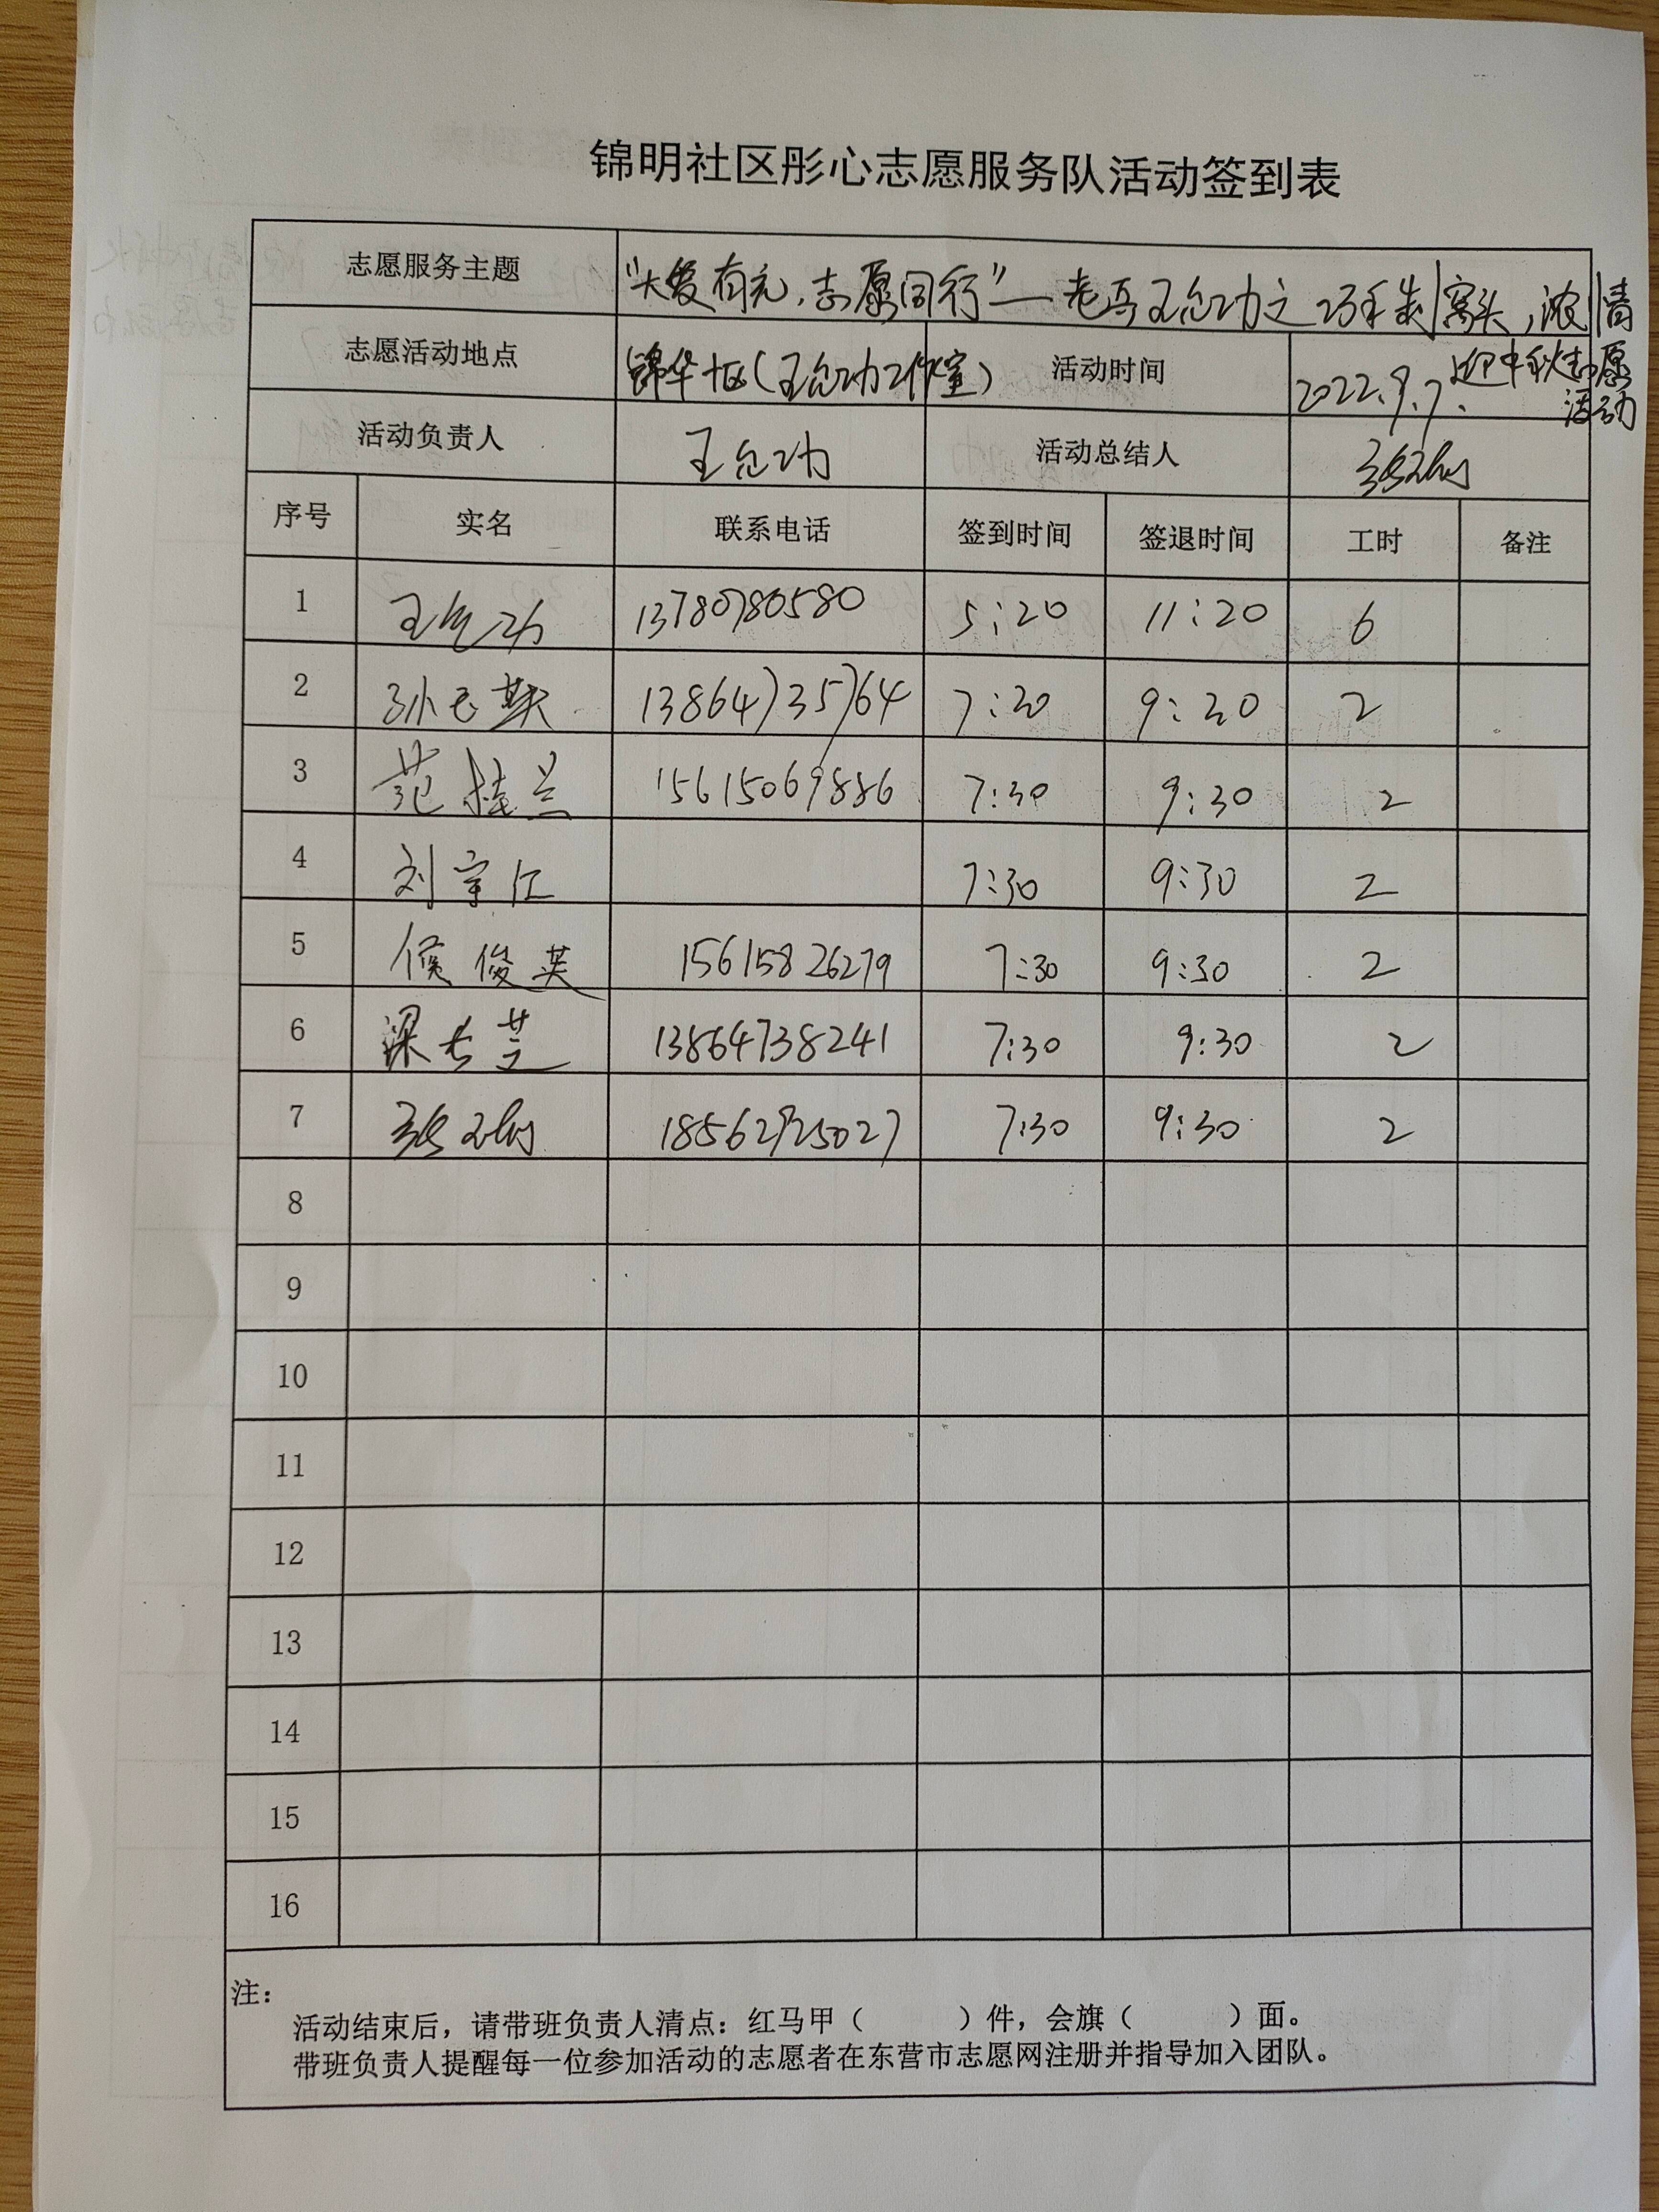 锦明社区彤心志愿服务队活动签到表
志愿服务主题 “大爱有光,志愿同行”—老兵王允功之巧手制窝头,浓情迎中秋志愿活动
志愿活动地点 锦华十区(王允功工作室) 活动时间 2022.9.7.
活动负责人 王允功 活动总结人
序号 实名 联系电话 签到时间 签退时间 工时 备注
1 王允功 13780780580 5:20 11:20 6
2 孙玉英 13864735764 7:20 9:20 2
3 范桂兰 15615069886 7:30 9:30 2
4 刘宇江 7:30 9:30 2
5 侯俊英 15615826279 7:30 9:30 2
6 梁大芝 13864738241 7:30 9:30 2
7 18562925027 7:30 9:30 2
8
9
10
11
12
13
14
15
16
注:
活动结束后,请带班负责人清点:红马甲( )件,会旗( )面。
带班负责人提醒每一位参加活动的志愿者在东营市志愿网注册并指导加入团队。